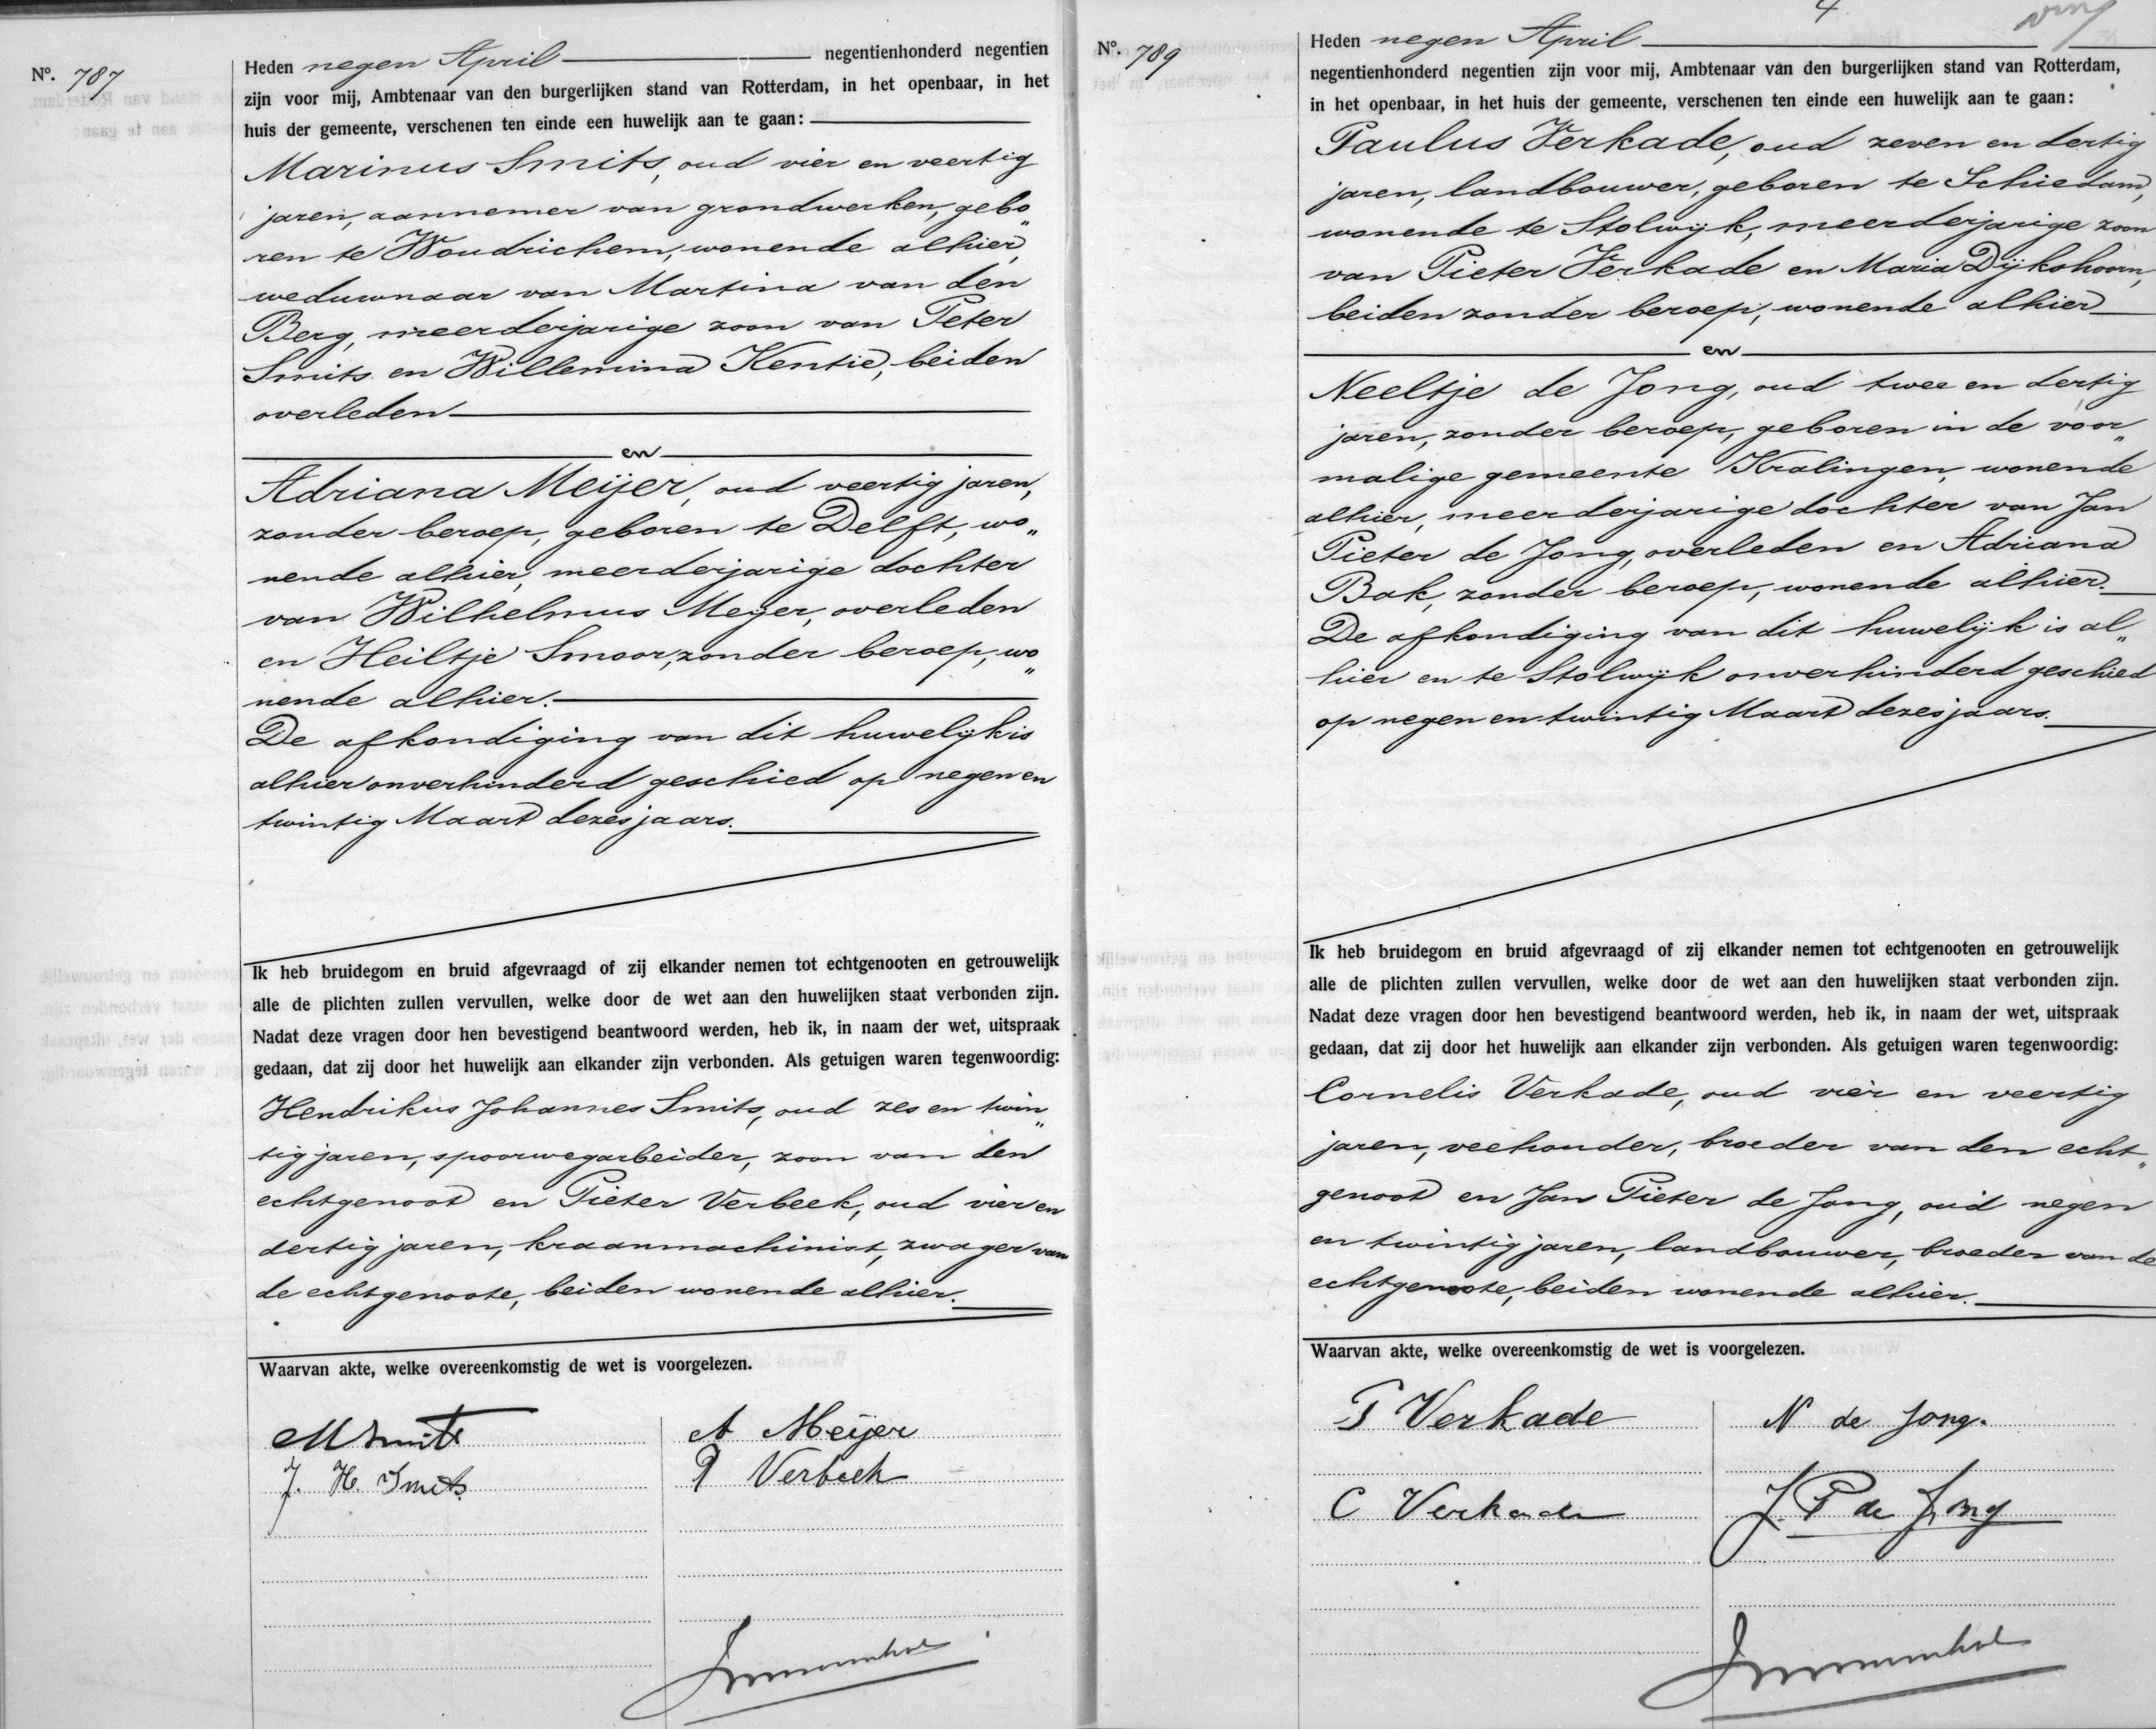 Nº. 787
Heden negen April negentienhonderd negentien
zijn voor mij, Ambtenaar van den burgerlijken stand van Rotterdam, in het openbaar, in het
huis der gemeente, verschenen ten einde een huwelijk aan te gaan:
Marinus Smits, oud vier en veertig
jaren, aannemer van grondwerken, gebo„
ren te Woudrichem, wonende alhier,
weduwnaar van Martina van den
Berg, meerderjarige zoon van Peter
Smits en Willemina Kentie, beiden
overleden
en
Adriana Meijer, oud veertig jaren,
zonder beroep, geboren te Delft, wo„
nende alhier, meerderjarige dochter
van Wilhelmus Meijer, overleden
en Heiltje Smoor, zonder beroep, wo„
nende alhier.
De afkondiging van dit huwelijk is
alhier onverhinderd geschied op negen en
twintig Maart dezes jaars.
Ik heb bruidegom en bruid afgevraagd of zij elkander nemen tot echtgenooten en getrouwelijk
alle de plichten zullen vervullen, welke door de wet aan den huwelijken staat verbonden zijn.
Nadat deze vragen door hen bevestigend beantwoord werden, heb ik, in naam der wet, uitspraak
gedaan, dat zij door het huwelijk aan elkander zijn verbonden. Als getuigen waren tegenwoordig:
Hendrikus Johannes Smits, oud zes en twin„
tig jaren, spoorwegarbeider, zoon van den
echtgenoot en Pieter Verbeek, oud vier en
dertig jaren, kraanmachinist, zwager van
de echtgenoote, beiden wonende alhier.
Waarvan akte, welke overeenkomstig de wet is voorgelezen.
M Smits
A Meijer
J. H. Smits
P Verbeek
Nº. 789
Heden negen April
negentienhonderd negentien zijn voor mij, Ambtenaar van den burgerlijken stand van Rotterdam,
in het openbaar, in het huis der gemeente, verschenen ten einde een huwelijk aan te gaan:
Paulus Verkade, oud zeven en dertig
jaren, landbouwer, geboren te Schiedam,
wonende te Stolwijk, meerderjarige zoon
van Pieter Verkade en Maria Dijkshoorn,
beiden zonder beroep, wonende alhier
en
Neeltje de Jong, oud twee en dertig
jaren, zonder beroep, geboren in de voor„
malige gemeente Kralingen, wonende
alhier, meerderjarige dochter van Jan
Pieter de Jong, overleden en Adriana
Bak, zonder beroep, wonende alhier.
De afkondiging van dit huwelijk is al„
hier en te Stolwijk onverhinderd geschied
op negen en twintig Maart dezes jaars.
Ik heb bruidegom en bruid afgevraagd of zij elkander nemen tot echtgenooten en getrouwelijk
alle de plichten zullen vervullen, welke door de wet aan den huwelijken staat verbonden zijn.
Nadat deze vragen door hen bevestigend beantwoord werden, heb ik, in naam der wet, uitspraak
gedaan, dat zij door het huwelijk aan elkander zijn verbonden. Als getuigen waren tegenwoordig:
Cornelis Verkade, oud vier en veertig
jaren, veehouder, broeder van den echt„
genoot en Jan Pieter de Jong, oud negen
en twintig jaren, landbouwer, broeder van de
echtgenoote, beiden wonende alhier.
Waarvan akte, welke overeenkomstig de wet is voorgelezen.
P Verkade
N de Jong.
C Verkade
J. P de Jong